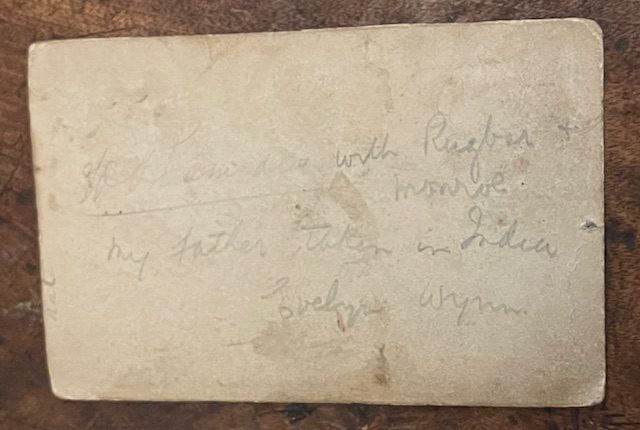 with Rugbar +
Monroe
My Father taken in India
Evelyn Wynn